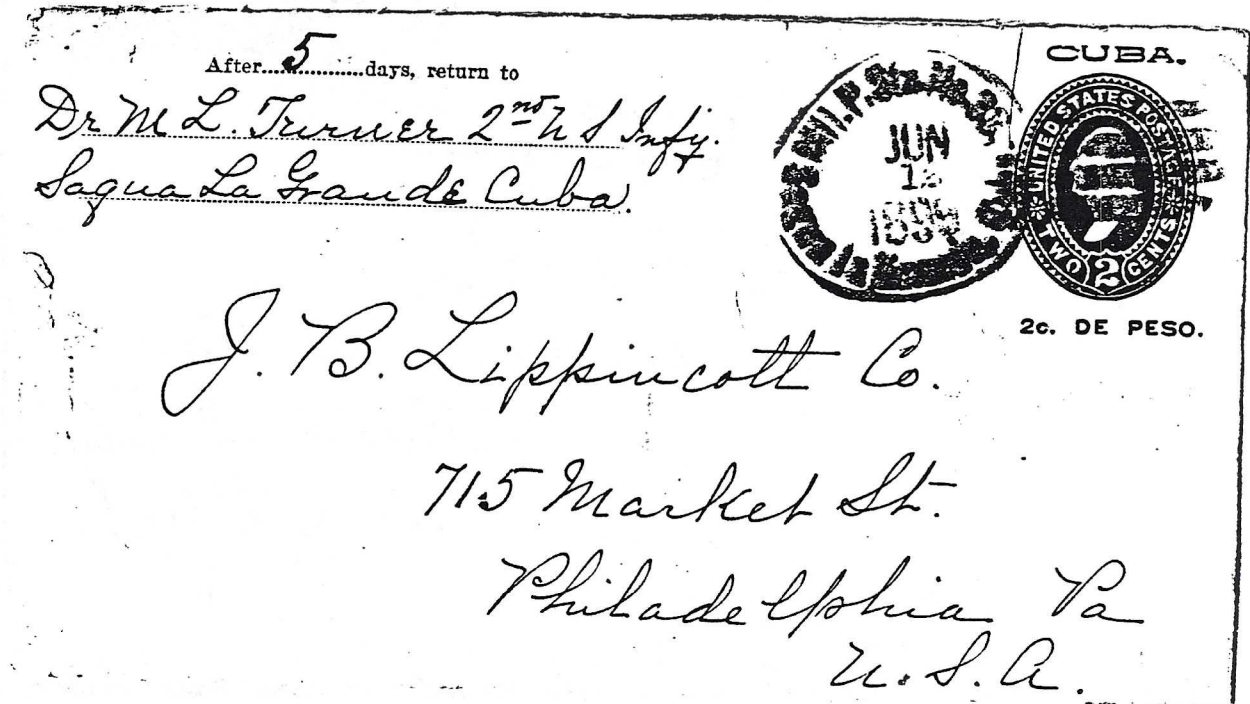 After 5 days, return to
Dr M L. Turner 2nd U S Infy.
Sagua La Grande Cuba.
JUN
1899
CUBA.
UNITED STATES POSTAGE
TWO 2 CENTS
2c. DE PESO.
J. B. Lippincott Co.
715 Market St.
Philadelphia Pa
U.S.A.